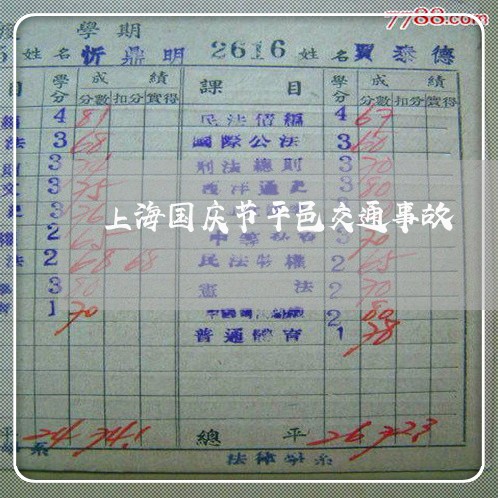 7788.com
學期
姓名 忻鼎明 2616 姓名 賈泰德
目 學分 成績 課目 學分 成績
分數 扣分 實得 分數 扣分 實得
4 81 民法債編 4 67
法 3 68 國際公法 3 60
則 3 刑法總則 3 70
3 75 西洋通史 3 80
3 76
上海国庆节平邑交通事故
2 65 3 70
法 2 68 68 民法物權 2 65
3 80 憲法 2 70
1 70 2 80
普通體育 1 78
平 24 74.1 總平 26 72.3
系 法律學系